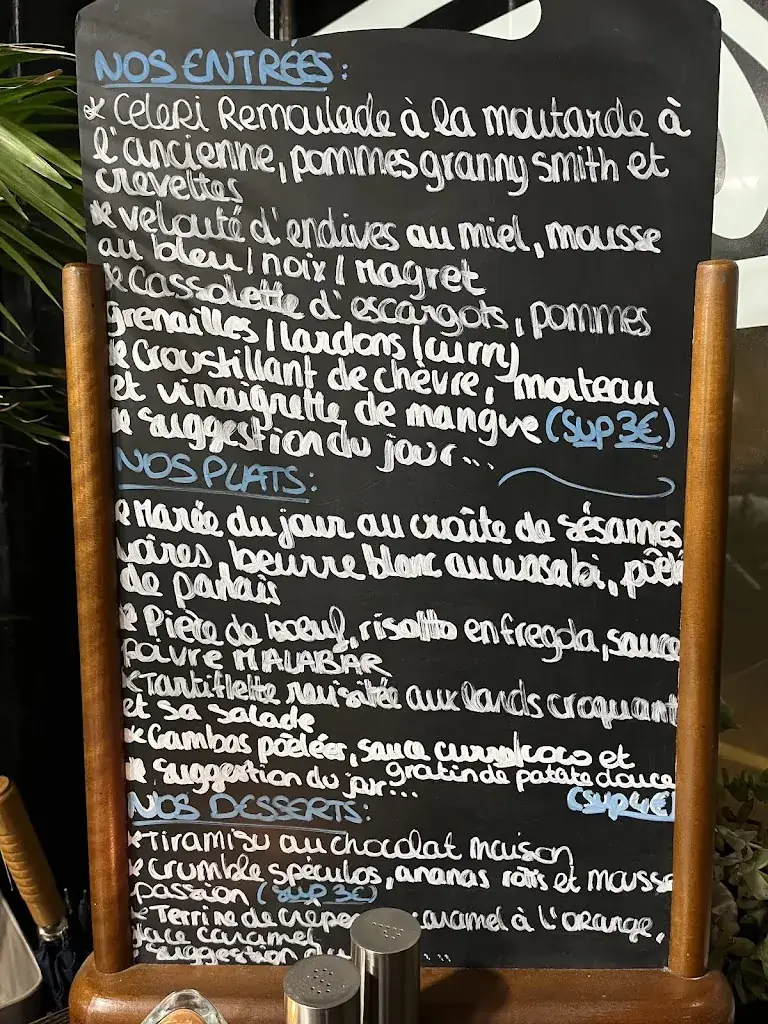 NOS ENTRÉES :
* Celeri Remoulade à la moutarde à
l'ancienne, pommes granny smith et
crevettes
* velouté d'endives au miel, mousse
au bleu / noix / Magret
* Cassolette d'escargots, pommes
grenailles / lardons / curry
* Croustillant de chèvre, morteau
et vinaigrette de mangue (SUP 3€)
* Suggestion du jour...
NOS PLATS :
* Marée du jour au croûte de sésames
noires beurre blanc au wasabi, poêlé
de panais
* Pièce de boeuf, risotto en fregola, sauce
poivre MALABAR
* Tartiflette revisitée aux lards croquant
et sa salade
* Gambas poêlées, sauce curry/coco et
gratin de patate douce
* Suggestion du jour...
(SUP 4€)
NOS DESSERTS :
* Tiramisu au chocolat maison
* Crumble spéculos, ananas rôtis et mousse
passion (SUP 3€)
* Terrine de crêpe caramel à l'orange,
glace caramel
* Suggestion du